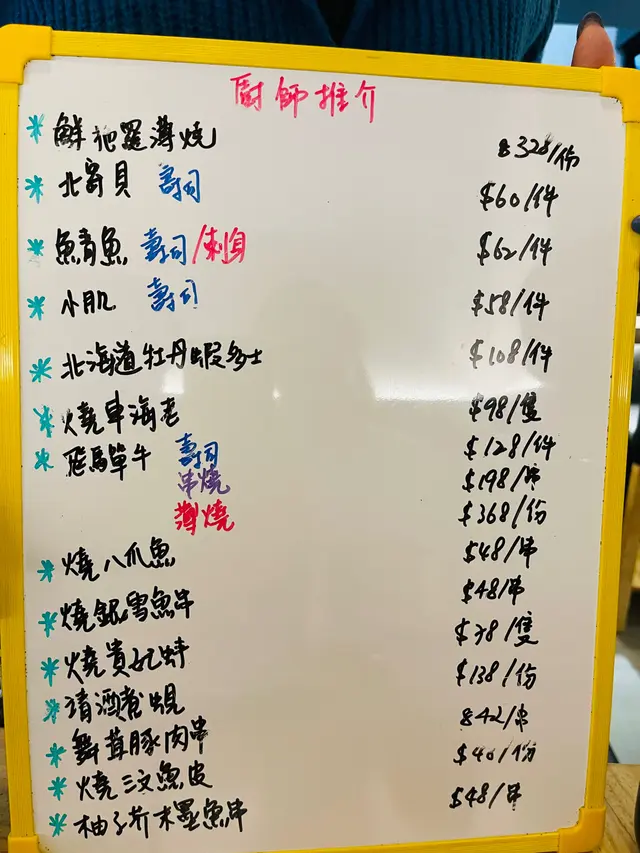 廚師推介
* 鮮祂羅薄燒 $328/份
* 北寄貝 壽司 $60/件
* 鯖魚 壽司/刺身 $62/件
* 小肌 壽司 $58/件
* 北海道牡丹蝦多士 $108/件
* 燒車海老 $98/隻
* 飛馬單牛 壽司 $128/件
串燒 $198/串
薄燒 $368/份
* 燒八爪魚 $48/串
* 燒銀雪魚串 $48/串
* 燒貴妃蚌 $38/隻
* 清酒煮蜆 $138/份
* 舞茸豚肉串 $42/串
* 燒三文魚皮 $46/份
* 柚子芥末墨魚串 $48/串